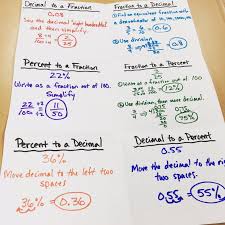 Decimal to a Fraction
0.08
Say the decimal "eight hundredths"
and then simplify.
8 ÷4 2
100 ÷4 25
Fraction to a Decimal
① Find equivalent fraction with
a denominator of 10, 100, 1000
0.8
② Use division
0.6
Percent to a Fraction
22%
Write as a fraction out of 100.
Simplify
22 ÷2 11
100 ÷2 50
Fraction to a Percent
① Write as a fraction out of 100
12%
② Use division, then move decimal.
75%
Percent to a Decimal
36%
Move decimal to the left two
spaces
36% = 0.36
Decimal to a Percent
0.55
Move the decimal to the right
two spaces.
0.55 = 55%